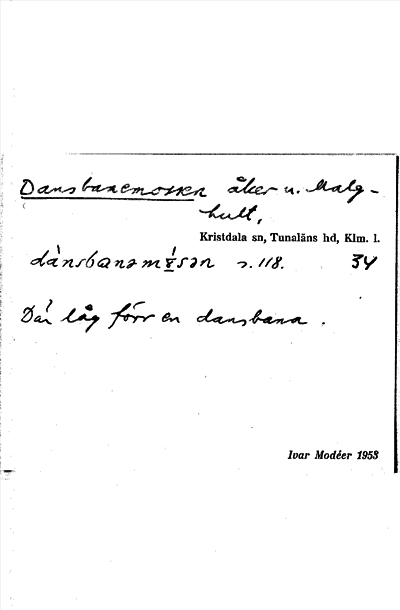 Dansbanemossen åker u. Malg-
hult,
Kristdala sn, Tunaläns hd, Klm. l.
s. 118. 34
Där låg förr en dansbana.
Ivar Modéer 1953